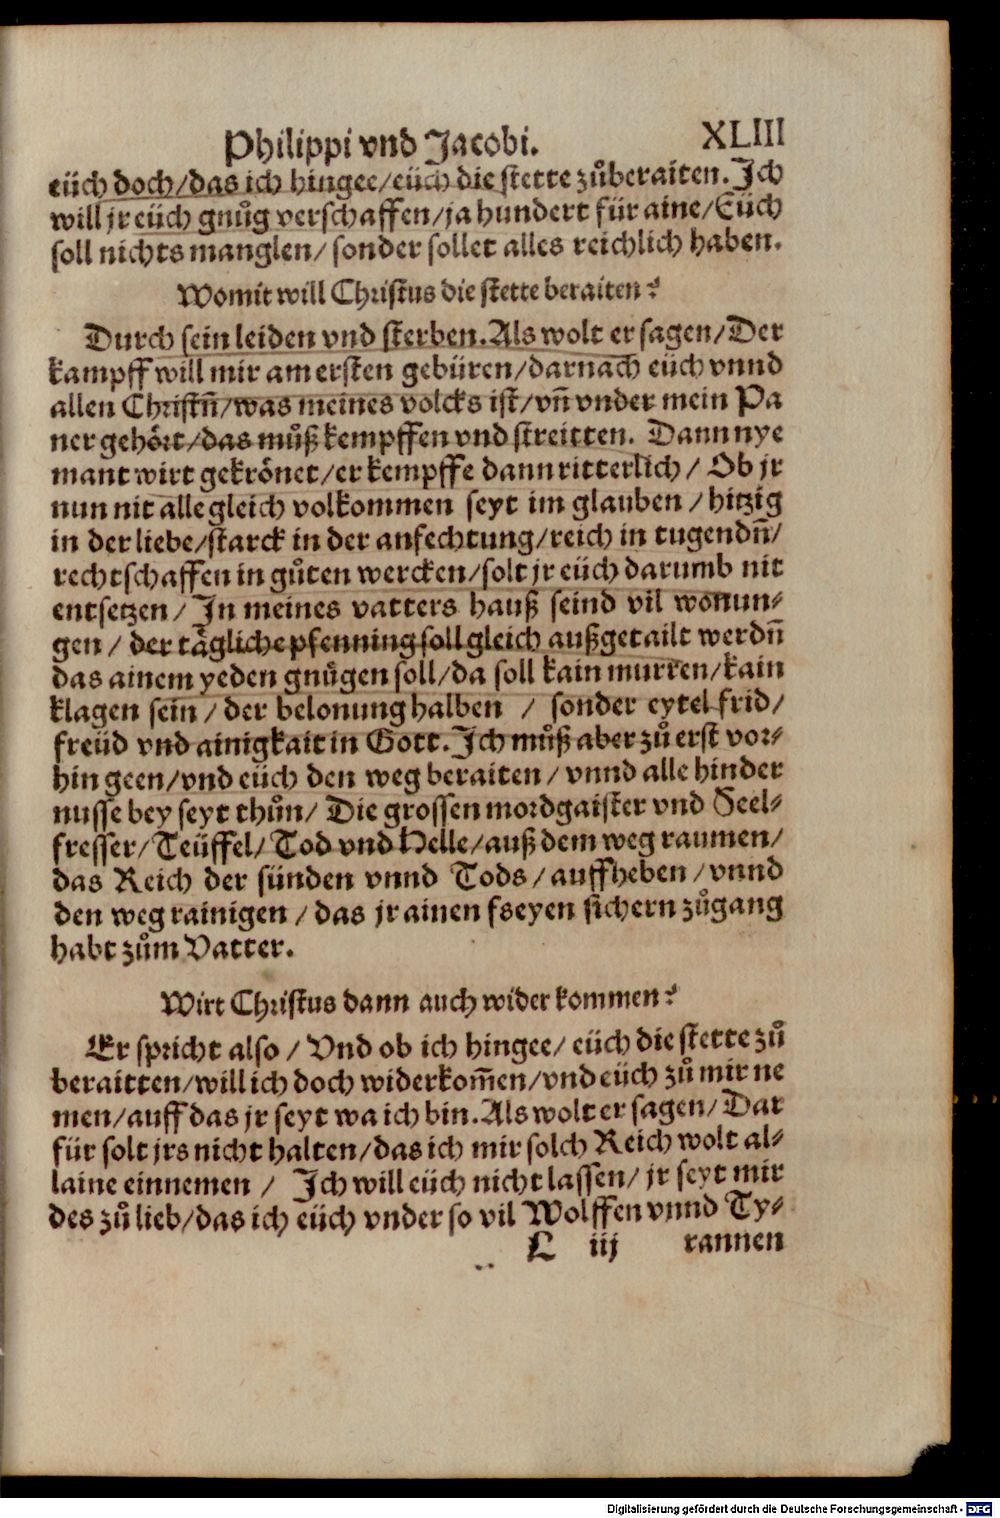 Philippi vnd Jacobi. XLIII
eüch doch/das ich hingee/eüch die stette zůberaiten. Ich
will jr eüch gnůg verschaffen/ja hundert für aine/Eüch
soll nichts manglen/sonder sollet alles reichlich haben.
Womit will Christus die stette beraiten?
Durch sein leiden vnd sterben. Als wolt er sagen/Der
kampff will mir am ersten gebüren/darnach eüch vnnd
allen Christn̄/was meines volcks ist/vn̄ vnder mein Pa
ner gehört/das můß kempffen vnd streitten. Dann nye
mant wirt gekrönet/er kempffe dann ritterlich/ Ob jr
nun nit alle gleich volkommen seyt im glauben/hitzig
in der liebe/starck in der anfechtung/reich in tugendn̄/
rechtschaffen in gůten wercken/solt jr eüch darumb nit
entsetzen/ In meines vatters hauß seind vil wonun⸗
gen/ der tägliche pfenning soll gleich außgetailt werdn̄
das ainem yeden gnůgen soll/da soll kain murren/kain
klagen sein/ der belonung halben / sonder eytel frid/
freüd vnd ainigkait in Gott. Ich můß aber zů erst vor⸗
hin geen/vnd eüch den weg beraiten/ vnnd alle hinder
nusse bey seyt thůn/ Die grossen mordgaister vnd Seel⸗
fresser/Teüffel/ Tod vnd Helle/auß dem weg raumen/
das Reich der sünden vnnd Tods/auffheben/vnnd
den weg rainigen/das jr ainen fseyen sichern zůgang
habt zům Vatter.
Wirt Christus dann auch wider kommen?
Er spricht also/ Vnd ob ich hingee/ eüch die stette zů
beraitten/will ich doch widerkom̄en/vnd eüch zů mir ne
men/auff das jr seyt wa ich bin. Als wolt er sagen/ Dar
für solt jrs nicht halten/das ich mir solch Reich wolt al⸗
laine einnemen/ Ich will eüch nicht lassen/ jr seyt mir
des zů lieb/das ich eüch vnder so vil Wolffen vnnd Ty⸗
L iij rannen
Digitalisierung gefördert durch die Deutsche Forschungsgemeinschaft - DFG